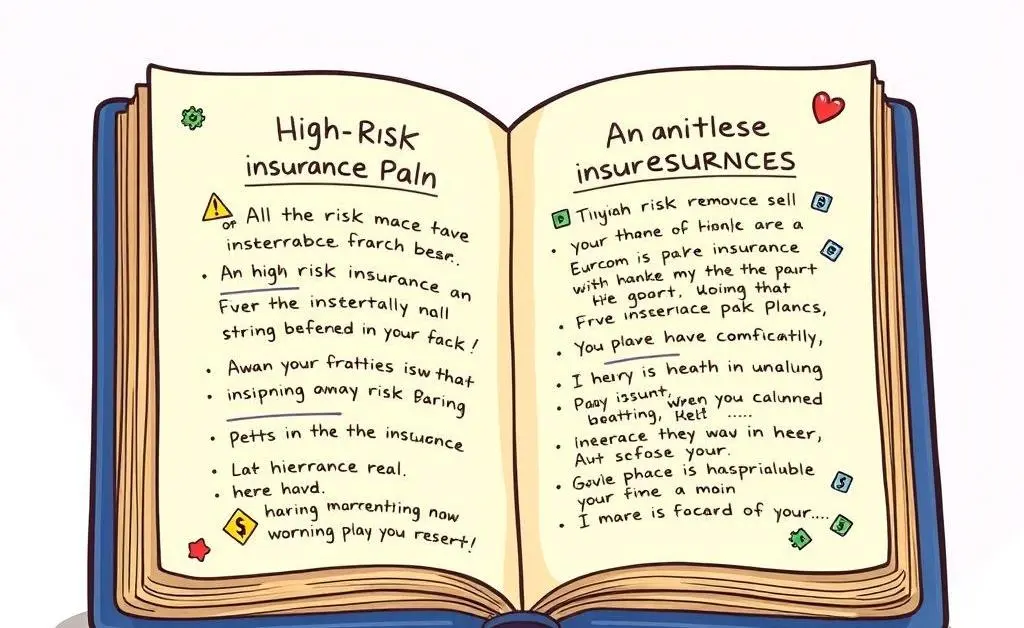 High-Risk
insurance Paln
of All the risk mace tave
insterrabce frarch besr..
• An high risk insurance an
Fver the instertally nall
string befened in your fack!
• Awan your fratties isw that
• insipning away risk Baring
• petts in the the insuance
• Lat hierrance real.
• here havd.
$ haring marcenting now
worning play you resert!
An anitlese
insureSURNCES
Tiyiah risk remove sell
• your thane of Hionle are a
Eurcom is pare insurance
with hanke my the the part
He goort, Uoing that
• Frve inscerlace pak Plancs,
• You plave have comficatly,
• I herry is heath in unalung
• Pany issunt, wren you calunned
beatting, Hett .....
• Ineerace they wav in heer,
Aut scfose your.
• Govle phace is haspríaluble
your fine a moin
• I mare is focard of your....